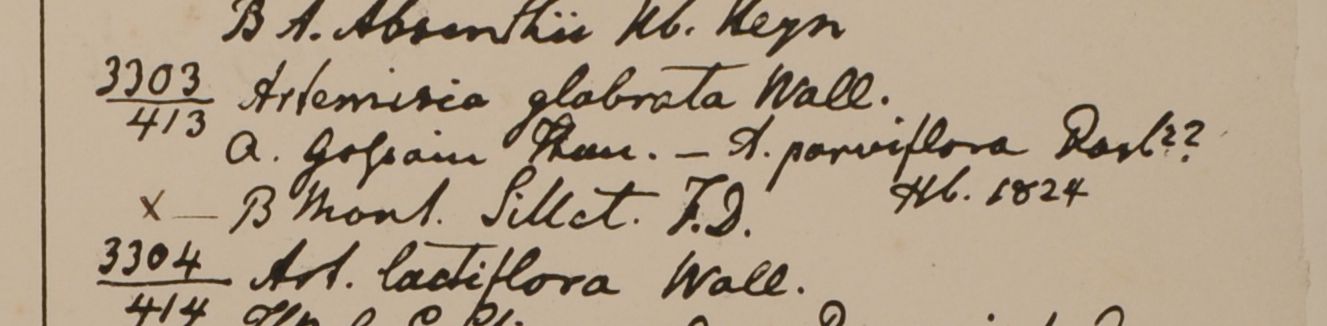 B A. Absinthii Hb. Heyn
3303 Artemisia glabrata Wall.
413
a. Gossain Than. – A. parviflora Roxb??
Hb. 1824
x — B Mont. Sillet. F.D.
3304 Art. lactiflora Wall.
414